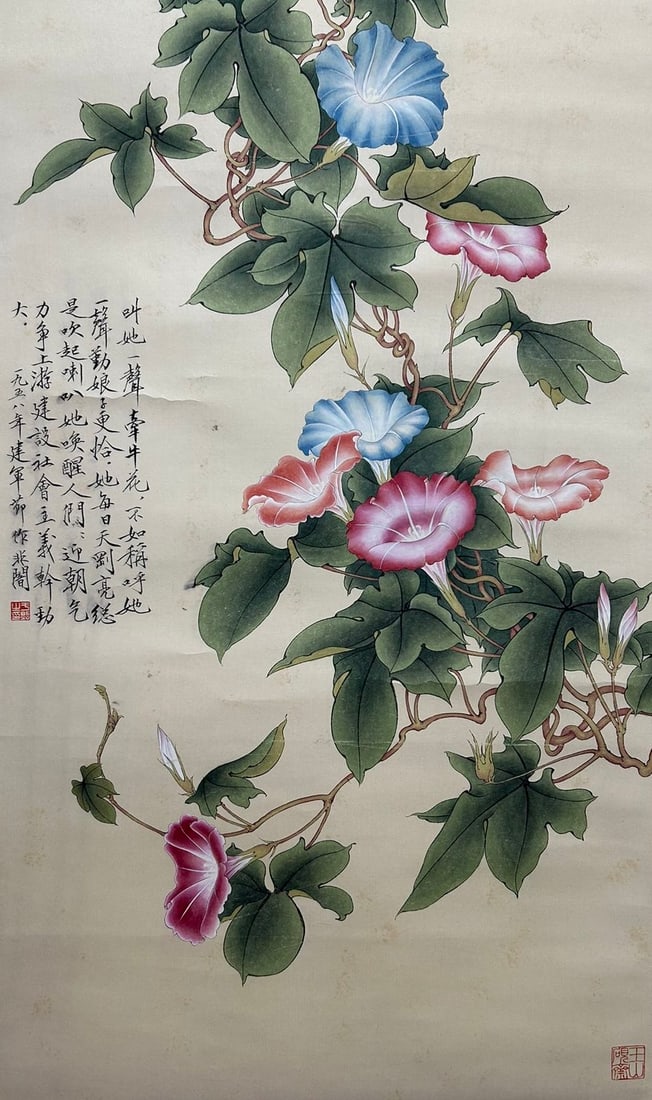 叫她一聲牽牛花，不如稱呼她
一聲勤娘子更恰，她每日天剛亮總
是吹起喇叭，她喚醒人們：迎朝气
力爭上游建設社會主義幹勁
大。
一九五八年建軍節作非闇